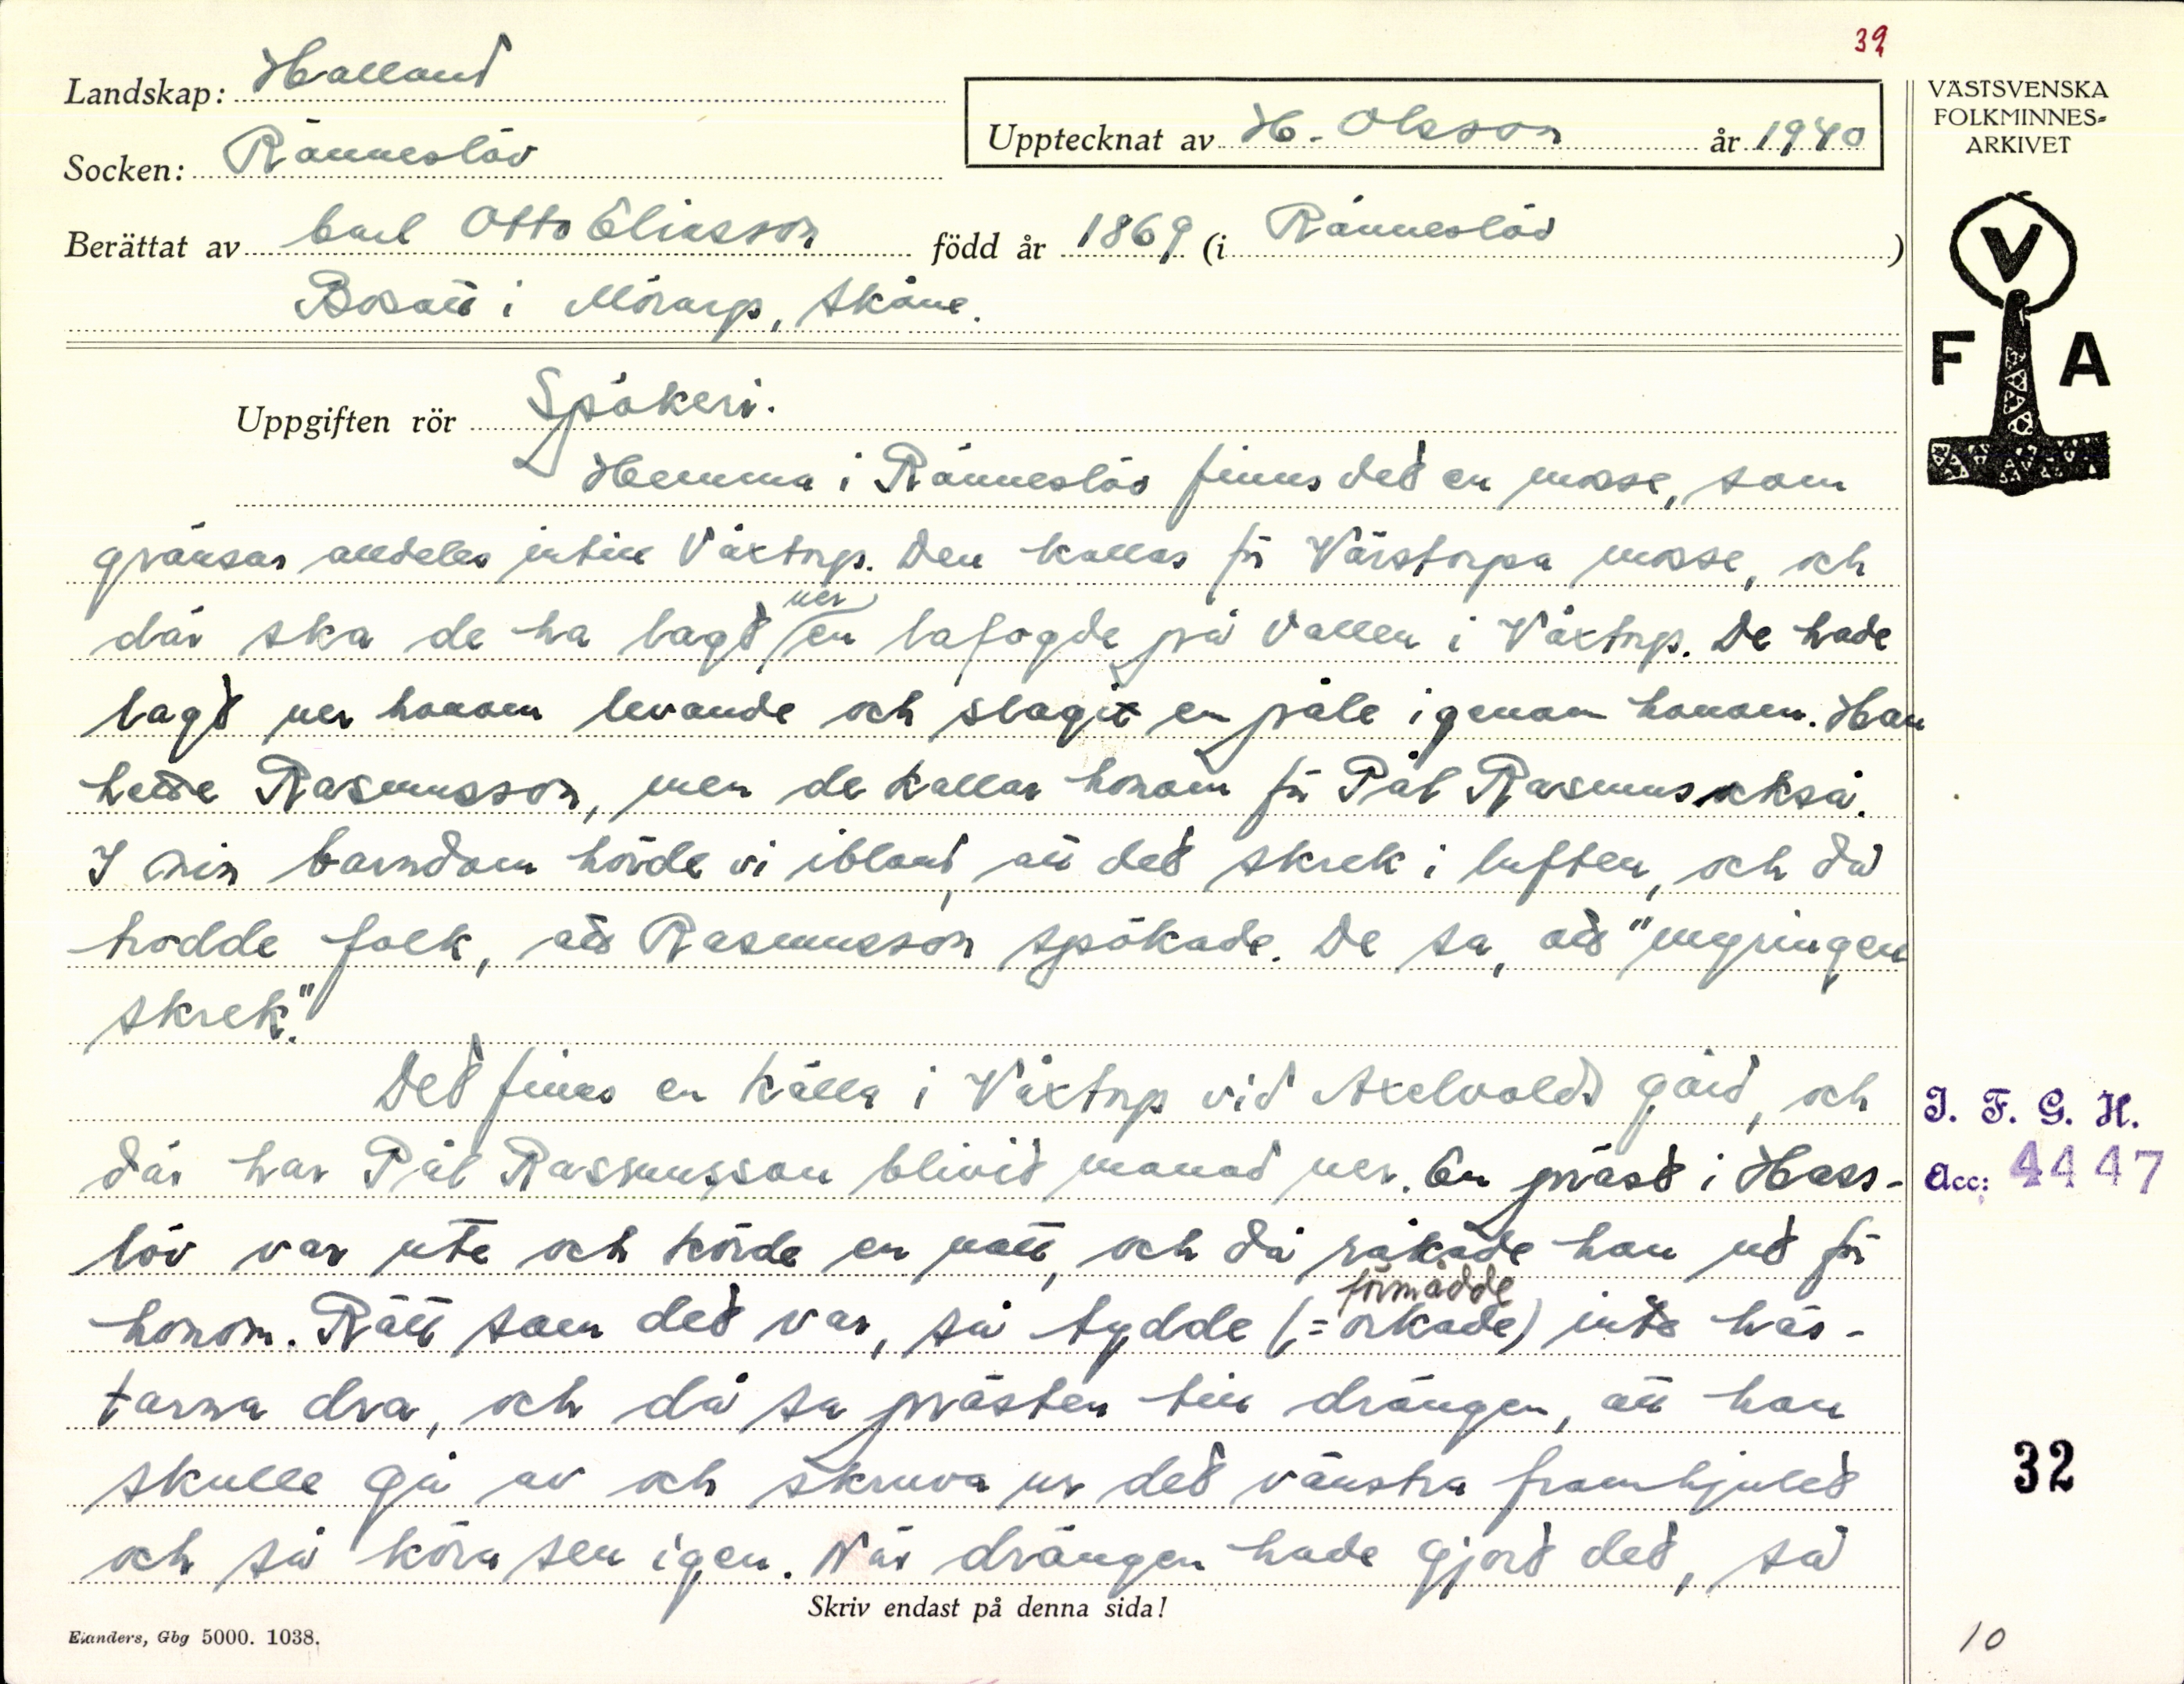 39
Landskap: Halland
Upptecknat av H. Olsson år 1940
VÄSTSVENSKA
FOLKMINNES=
ARKIVET
Socken: Ränneslöv
Berättat av Carl Otto Eliasson född år 1869 (i Ränneslöv)
Bosatt i Mörarp, Skåne.
V
F A
Uppgiften rör Spökeri.
Hemma i Ränneslöv finns det en mosse, som
gränsar alldeles intill Våxtorp. Den kallas för Vårstorpa mosse, och
ner
där ska de ha lagt en lafogde på Vallen i Våxtorp. De hade
lagt ner honom levande och slagit en påle igenom honom. Han
hette Rasmusson, men de kallar honom för Pål Rasmus också.
I min barndom hörde vi ibland, att det skrek i luften, och då
trodde folk, att Rasmusson spökade. De sa, att "myringen
skrek."
Det finns en källa i Våxtorp vid Axelvolds gård, och
där har Pål Rasmusson blivit manad ner. En präst i Hass-
löv var ute och körde en natt, och då råkade han ut för
förmådde
honom. Rätt som det var, så tydde (= orkade) inte häs-
tarna dra, och då sa prästen till drängen, att han
skulle gå av och skruva ur det vänstra framhjulet
och så köra sen igen. När drängen hade gjort det, så
Skriv endast på denna sida!
Elanders, Gbg 5000. 1038.
I. F. G. H.
Acc: 4447
32
10